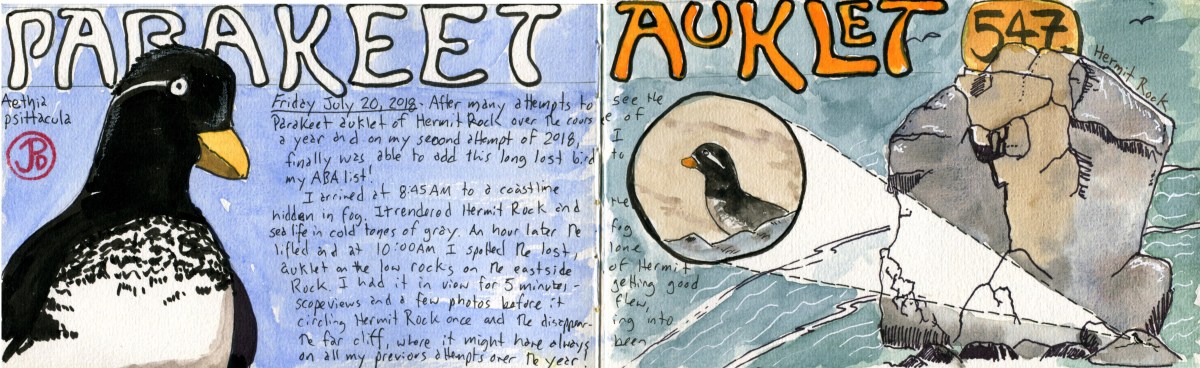 PARAKEET AUKLET
547
Hermit Rock
Aethia
psittacula
JPD
Friday July 20, 2018- After many attempts to see the
Parakeet auklet of Hermit Rock over the course of
a year and on my second attempt of 2018, I
finally was able to add this long lost bird to
my ABA list!
I arrived at 8:45 AM to a coastline
hidden in fog. It rendered Hermit Rock and the
sea life in cold tones of gray. An hour later the fog
lifted and at 10:00 AM I spotted the lost, lone
auklet on the low rocks on the eastside of Hermit
Rock. I had it in view for 5 minutes- getting good
scopeviews and a few photos before it flew,
circling Hermit Rock once and the disappearing into
the far cliff, where it might have always been
on all my previous attempts over the year!